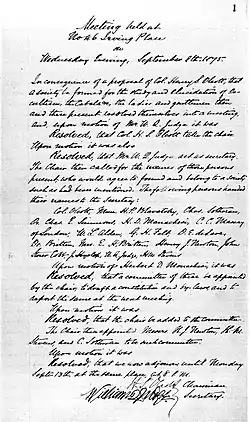 1
Meeting held at
No 46 Irving Place
on
Wednesday Evening, September 8th 1875.
In consequence of a proposal of Col. Henry S. Olcott, that
a Society be formed for the study and elucidation of Oc-
cultism, the Cabala &c, the ladies and gentlemen then
and there present resolved themselves into a meeting,
and, upon motion of Mr W. Q. Judge, it was
Resolved, that Col. H. S. Olcott take the chair.
Upon motion it was also
Resolved, that Mr W. Q. Judge act as secretary.
The Chair then called for the names of the persons
present, who would agree to found and belong to a society
such as had been mentioned. The following persons handed
their names to the Secretary:
Col. Olcott, Mme. H. P. Blavatsky, Chas. Sotheran,
Dr. Chas. E. Simmons, H. D. Monachesi, C. C. Massey
of London, W. L. Alden, G. H. Felt, D. E. de Lara,
Dr. Britten, Mrs. E. H. Britten, Henry J. Newton, John
Storer Cobb, J. Hyslop, W. Q. Judge, H. M. Stevens
Upon motion of Herbert D. Monachesi, it was
Resolved, that a committee of three be appointed
by the chair, to draft a constitution and by-laws, and to
report the same at the next meeting.
Upon motion it was
Resolved, that the chair be added to the committee.
The Chair then appointed Messrs H. J. Newton, H. M.
Stevens, and C. Sotheran to be such committee.
Upon motion it was
Resolved, that we now adjourn until Monday
Sept. 13th at the same place, at 8 P.M.
H. S. Olcott Chairman
William Q Judge Secretary.